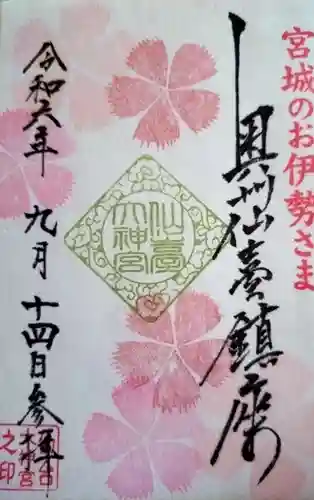 宮城のお伊勢さま
奥州仙臺鎮座
仙臺
大神宮
令和六年 九月 十四日参拝